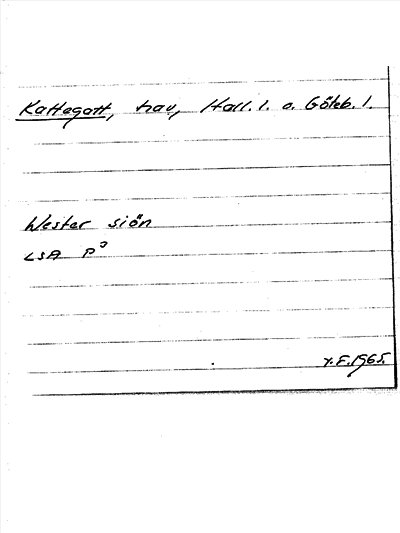 Kattegatt, hav, Hall. l. o. Göteb. l.
Wester siön
LSA P³
F. 1965.